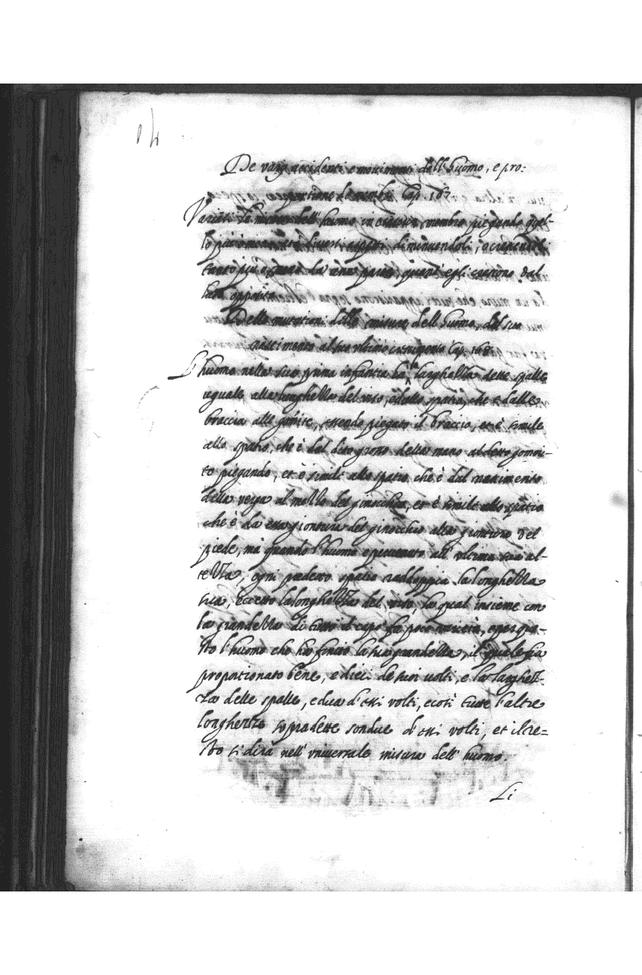 14
De varij accidenti e movimenti dell'huomo, e pro:
portione de membri. Cap. 167.
Varian le misure dell'huomo in ciascun membro piegando quel-
lo più o meno, et a diversi aspetti, diminuendoli, o crescendoli
tanto più o meno da una parte, quant'egli crescono dal
lato opposito.
Delle mutationi delle misure dell'huomo, dal suo
nascimento al suo ultimo Cap. 168.
L'huomo nella sua prima infantia ha la larghezza delle spalle
eguale alla lunghezza del viso, et allo spatio, che è dalle
braccia alle gomite, essendo piegato il braccio, et è simile
allo spatio, che è dal dito grosso della mano al detto gomi-
to piegando, et è simile allo spatio, che è dal nascimento
della verga al mezzo del ginocchio, et è simile allo spatio
che è da essa giontura del ginocchio alla giontura del
piede, ma quando l'huomo è pervenuto all'ultima sua al-
tezza, ogni predetto spatio raddoppia la longhezza
sua, eccetto la longhezza del viso, la qual insieme con
la grandezza di tutto il capo fa poca
l'huomo che ha finito la sua grandezza, il quale sia
proportionato bene, e dieci de suoi volti, e la larghez-
za delle spalle, e dua d'essi volti, e così tutte l'altre
longhezze sopradette son due d'essi volti, et il re-
sto si dirà nell'universale misura dell'huomo.
Li